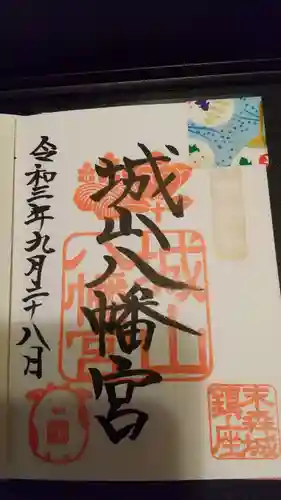 城山八幡宮
令和三年九月二十八日
城山
八幡宮
末森城
鎮座